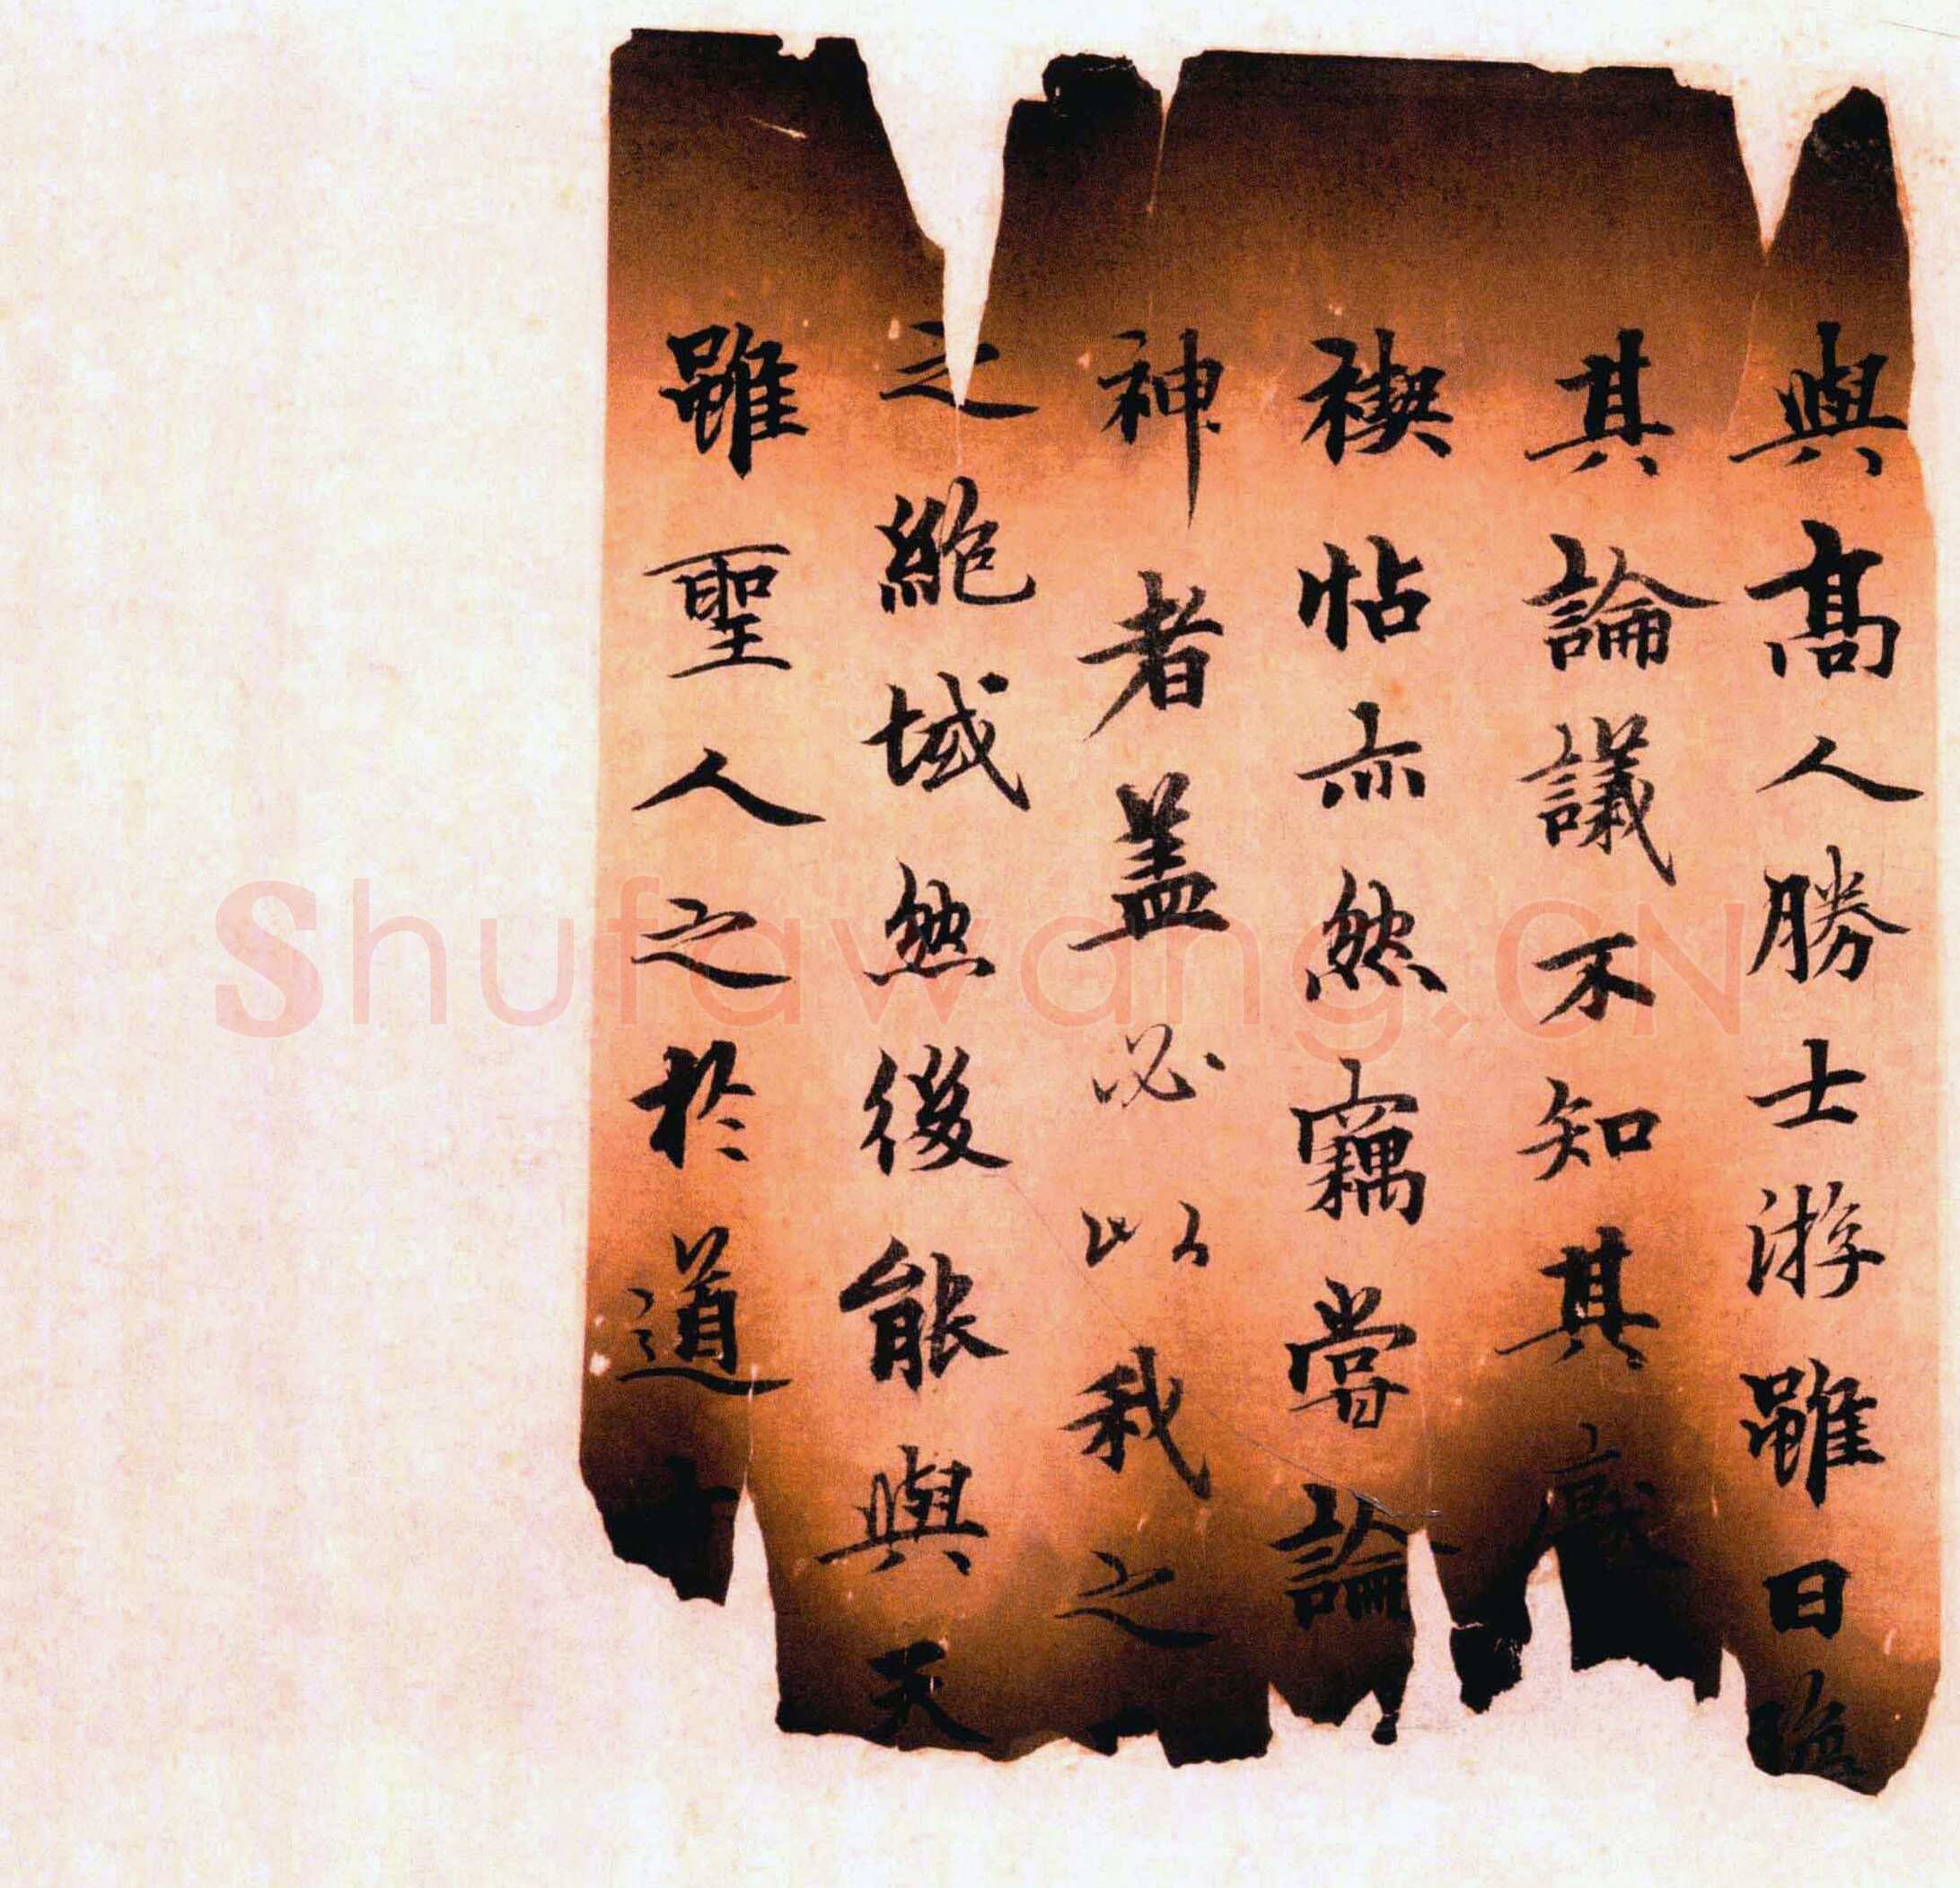 與高人勝士游雖日臨
其論議不知其厭
禊帖亦然竊嘗論
神者盖必以我之
之絶域然後能與天
雖聖人之於道
Shufawang.CN